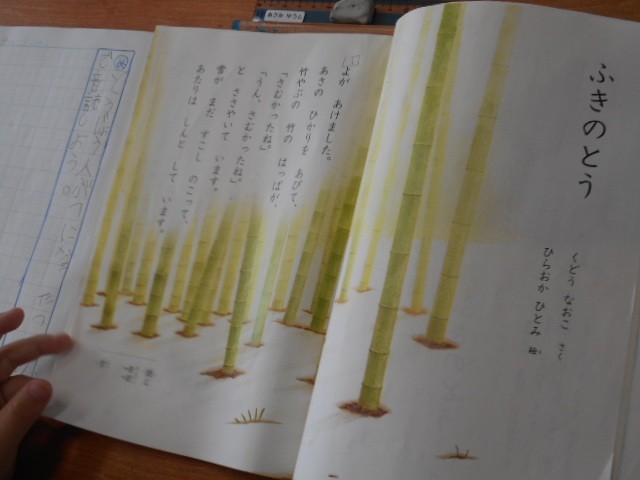 ふきのとう
くどう なおこ さく
ひらおか ひとみ 絵
よが あけました。
あさの ひかりを あびて、
竹やぶの 竹の はっぱが、
「さむかったね。」
「うん、さむかったね。」
と ささやいて います。
雪が まだ すこし のこって、
あたりは しんと して います。